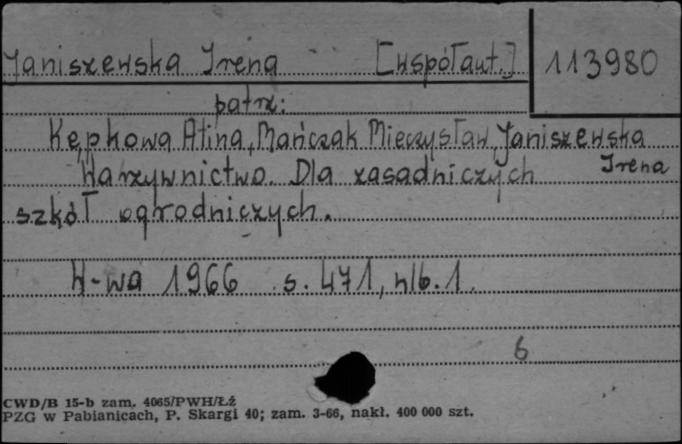 Janiszewska Irena [współaut.] 113980
patrz:
Kępkowa Alina, Mańczak Mieczysław, Janiszewska
Warzywnictwo. Dla zasadniczych Irena
szkół ogrodniczych.
W-wa 1966 s. 471, nlb. 1.
6
CWD/B 15-b zam. 4065/PWH/Łź
PZG w Pabianicach, P. Skargi 40; zam. 3-66, nakł. 400 000 szt.